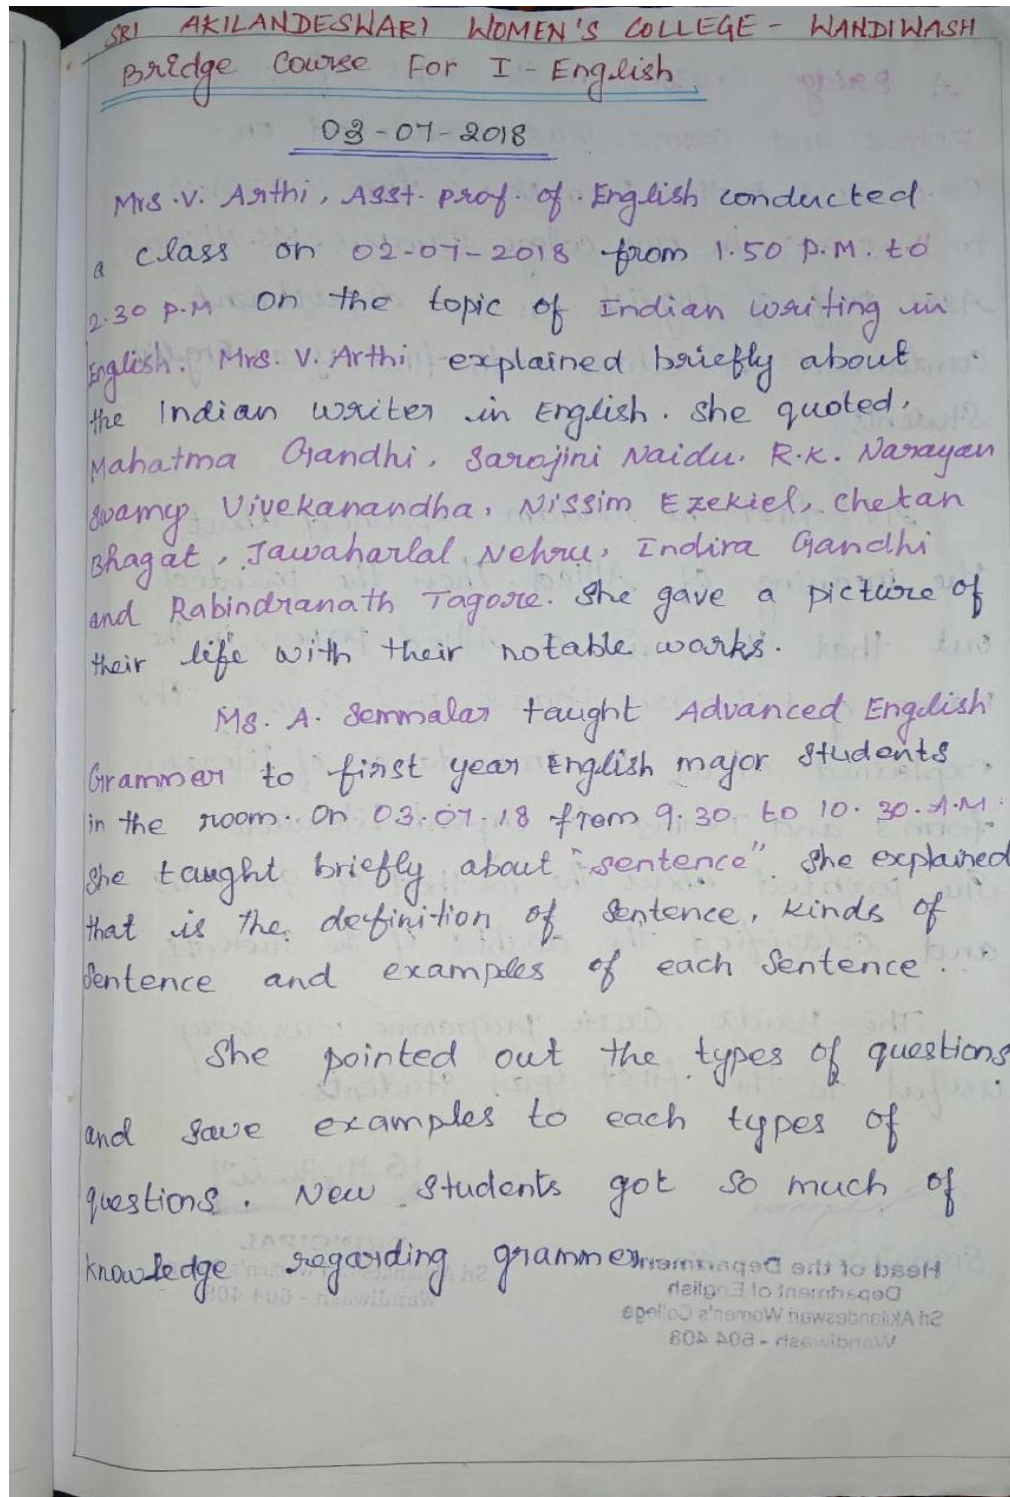 SRI AKILANDESWARI WOMEN'S COLLEGE - WANDIWASH
Bridge Course For I - English
03-07-2018
Mrs. V. Arthi, Asst. prof. of. English conducted
a class on 02-07-2018 from 1.50 P.M. to
2.30 P.M on the topic of Indian writing in
English. Mrs. V. Arthi explained briefly about
the Indian writer in English. She quoted,
Mahatma Gandhi, Sarojini Naidu. R.K. Narayan
Swamy Vivekanandha, Nissim Ezekiel, Chetan
Bhagat, Jawaharlal Nehru, Indira Gandhi
and Rabindranath Tagore. She gave a picture of
their life with their notable works.
Ms. A. Semmalar taught Advanced English
Grammer to first year English major students
in the room. On 03.07.18 from 9.30 to 10.30.A.M.
She taught briefly about "sentence". She explained
that is the definition of Sentence, kinds of
Sentence and examples of each Sentence.
She pointed out the types of questions
and gave examples to each types of
questions. New students got so much of
knowledge regarding grammer.
Head of the Department
Department of English
Sri Akilandeswari Women's College
Wandiwash - 604 408